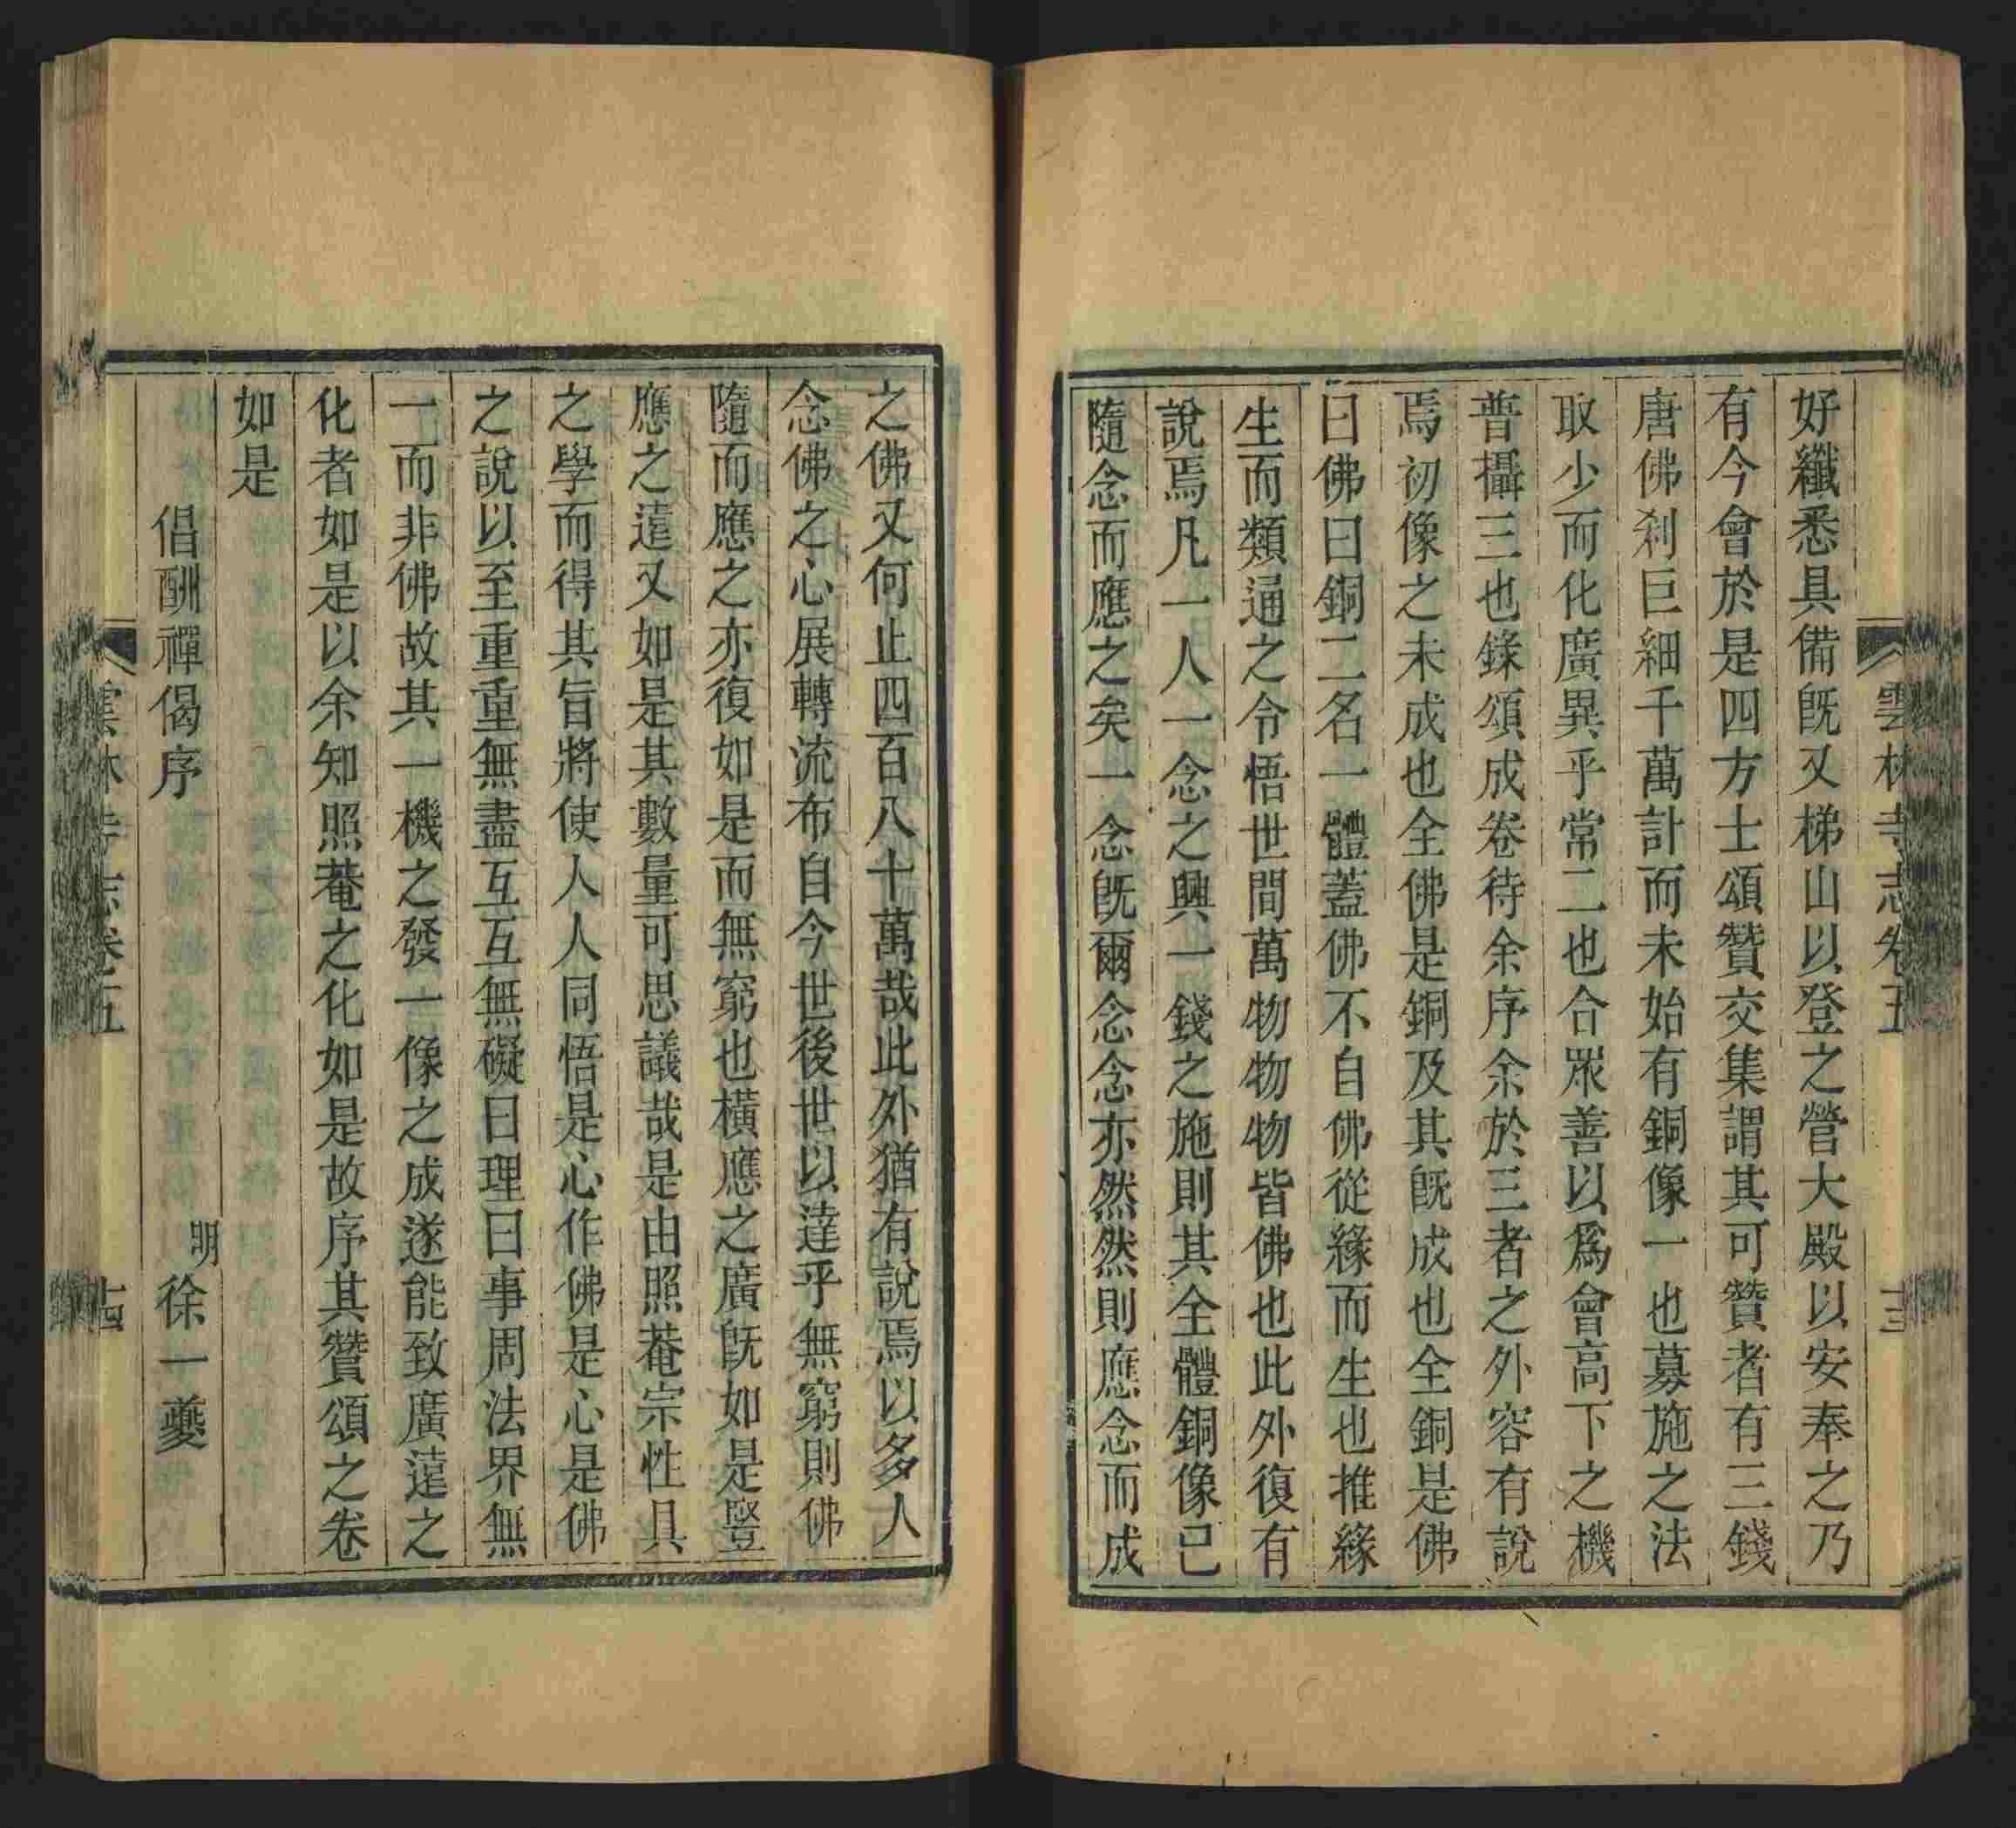 好纖悉具備旣又梯山以登之營大殿以安奉之乃
有今會於是四方士頌贊交集謂其可贊者有三錢
唐佛刹巨細千萬計而未始有銅像一也募施之法
取少而化廣異乎常二也合眾善以爲會高下之機
普攝三也錄頌成卷待余序余於三者之外容有說
焉初像之未成也全佛是銅及其旣成也全銅是佛
曰佛曰銅二名一體蓋佛不自佛從緣而生也推緣
生而類通之令悟世間萬物物物皆佛也此外復有
說焉凡一人一念之興一錢之施則其全體銅像已
隨念而應之矣一念旣爾念念亦然然則應念而成
雲林寺志卷五
十三
之佛又何止四百八十萬哉此外猶有說焉以多人
念佛之心展轉流布自今世後世以達乎無窮則佛
隨而應之亦復如是而無窮也橫應之廣旣如是豎
應之遠又如是其數量可思議哉是由照菴宗性具
之學而得其旨將使人人同悟是心作佛是心是佛
之說以至重重無盡互互無礙曰理曰事周法界無
一而非佛故其一機之發一像之成遂能致廣遠之
化者如是以余知照菴之化如是故序其贊頌之卷
如是
倡酬禪偈序
明徐一夔
雲林寺志卷五
十四